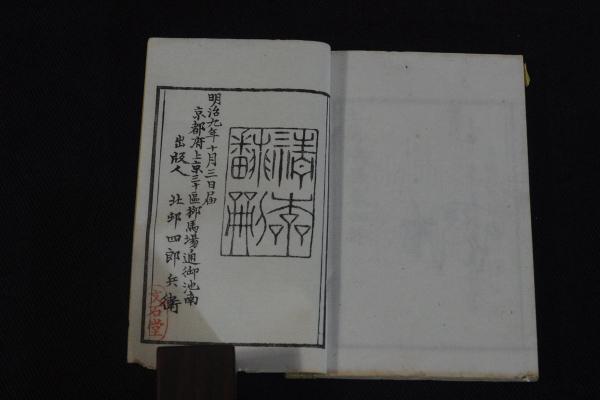 明治九年十月三日届
京都府上京三十區栁馬場通御池南
出版人 北邨四郎兵衛
文石堂